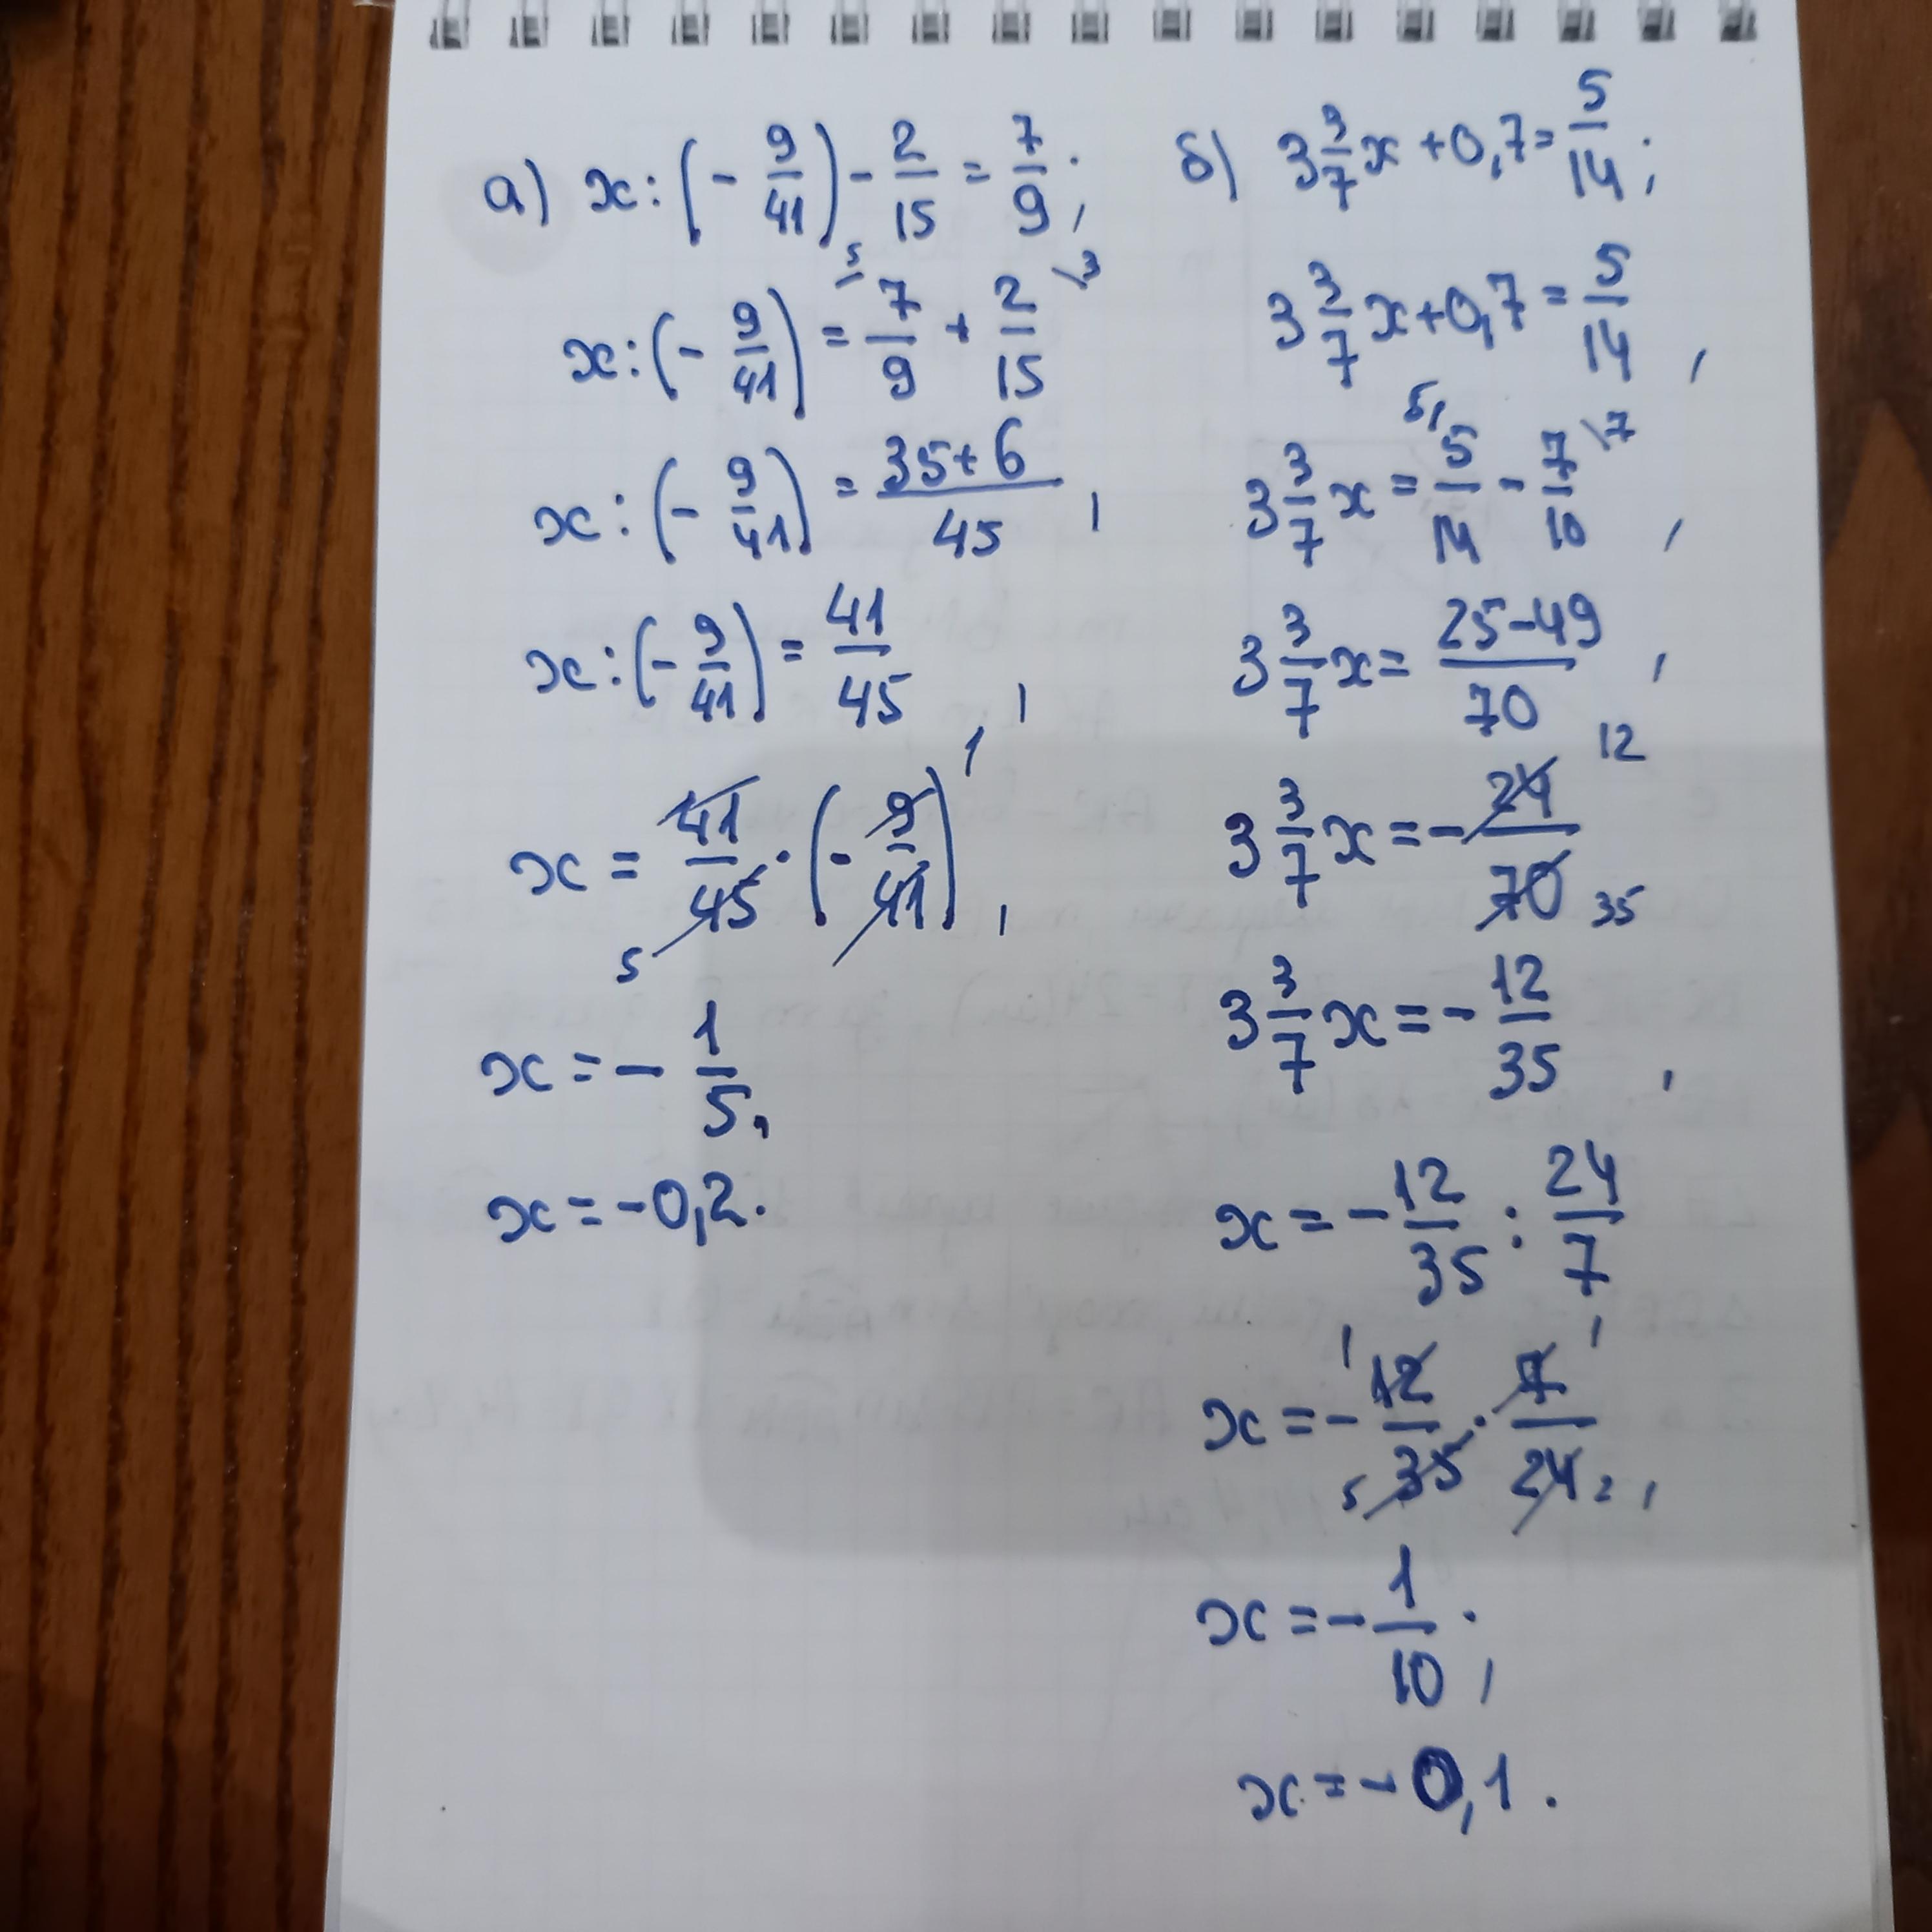 а) x : (- 9/41) - 2/15 = 7/9;
x : (- 9/41) = 7/9 \5 + 2/15 \3
x : (- 9/41) = (35+6)/45,
x : (- 9/41) = 41/45,
x = 41/45 · (- 9/41), 1 5
x = - 1/5,
x = -0,2.
б) 3 3/7 x + 0,7 = 5/14;
3 3/7 x + 0,7 = 5/14,
3 3/7 x = 5/14 \5 - 7/10 \7,
3 3/7 x = (25-49)/70,
3 3/7 x = - 24/70 12 35
3 3/7 x = - 12/35,
x = - 12/35 : 24/7
x = - 12/35 · 7/24, 1 1 5 2
x = - 1/10;
x = - 0,1.